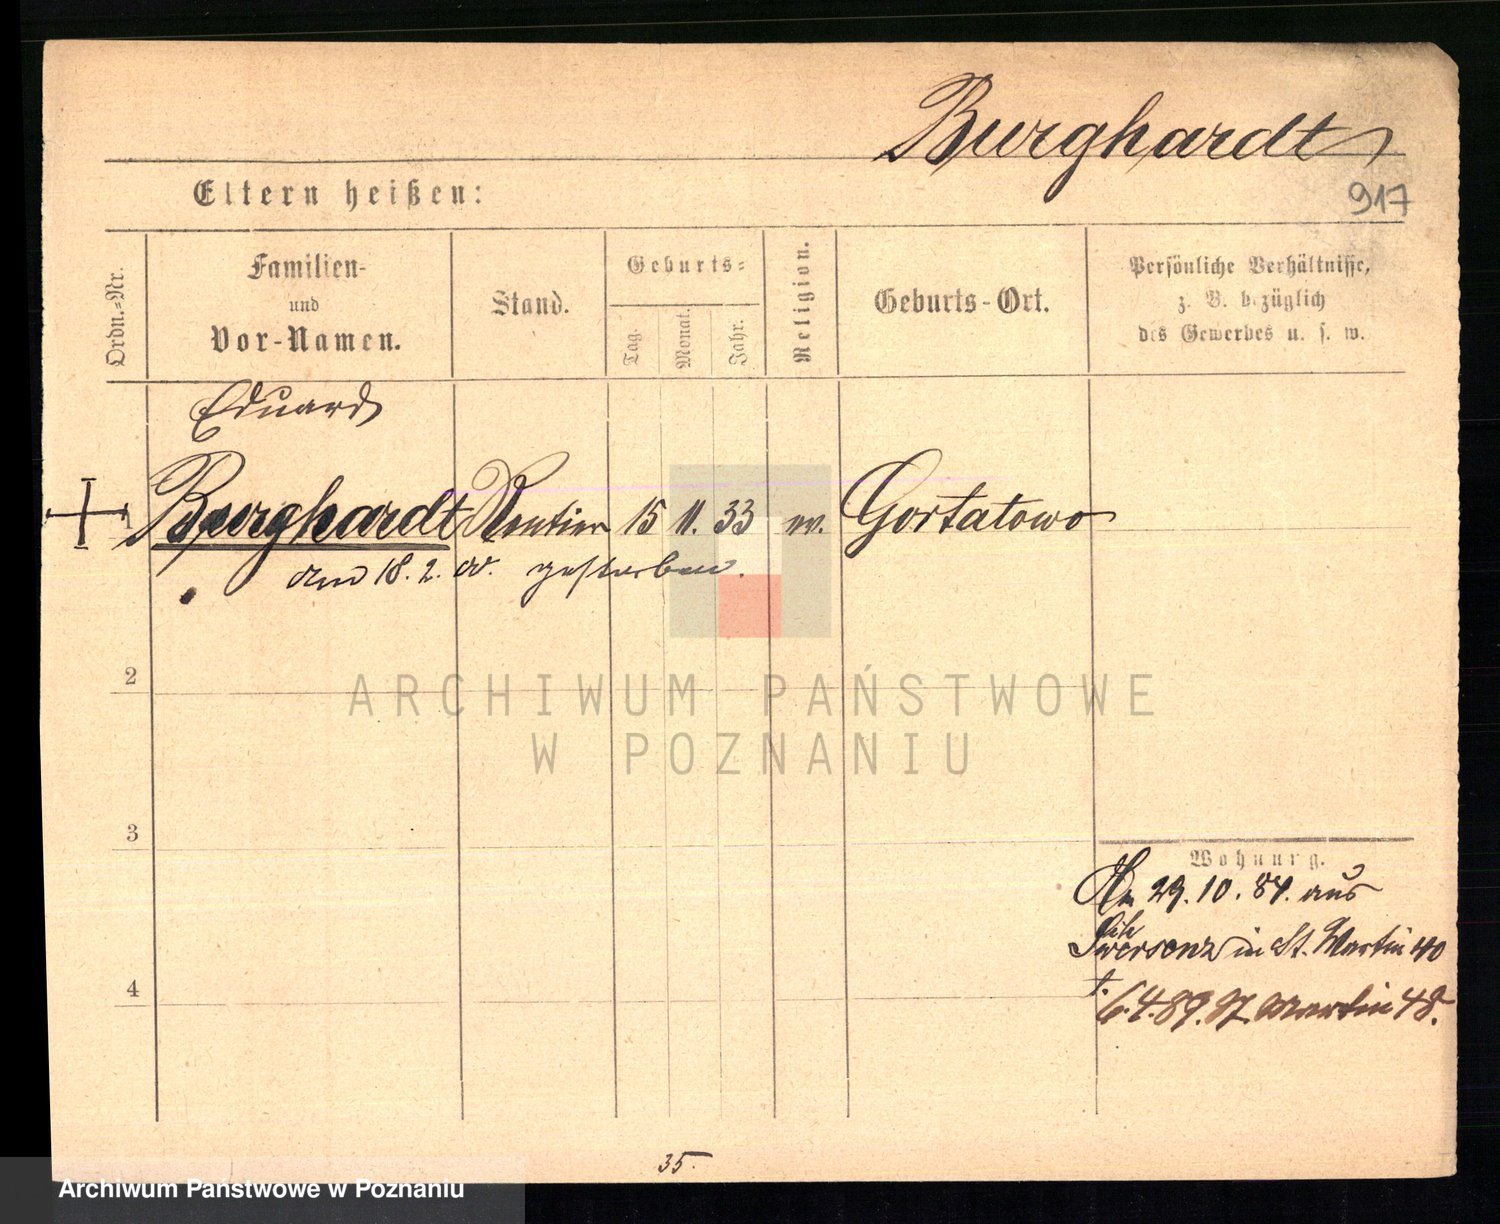 Burghardt
917
Eltern heißen:
Ordn.-Nr.
Familien-
und
Vor-Namen.
Stand.
Geburts-
Tag.
Monat.
Jahr.
Religion.
Geburts-Ort.
Persönliche Verhältnisse,
z. B. bezüglich
des Gewerbes u. s. w.
Eduard
1 Burghardt Rentier 15 11. 33 ev. Gortatowo
am 18. 2. gestorben.
2
ARCHIWUM PAŃSTWOWE
W POZNANIU
3
4
Wohnung.
29. 10. 84. aus
Swersenz in St. Martin 40
6.4.89. St. Martin 48.
35.
Archiwum Państwowe w Poznaniu